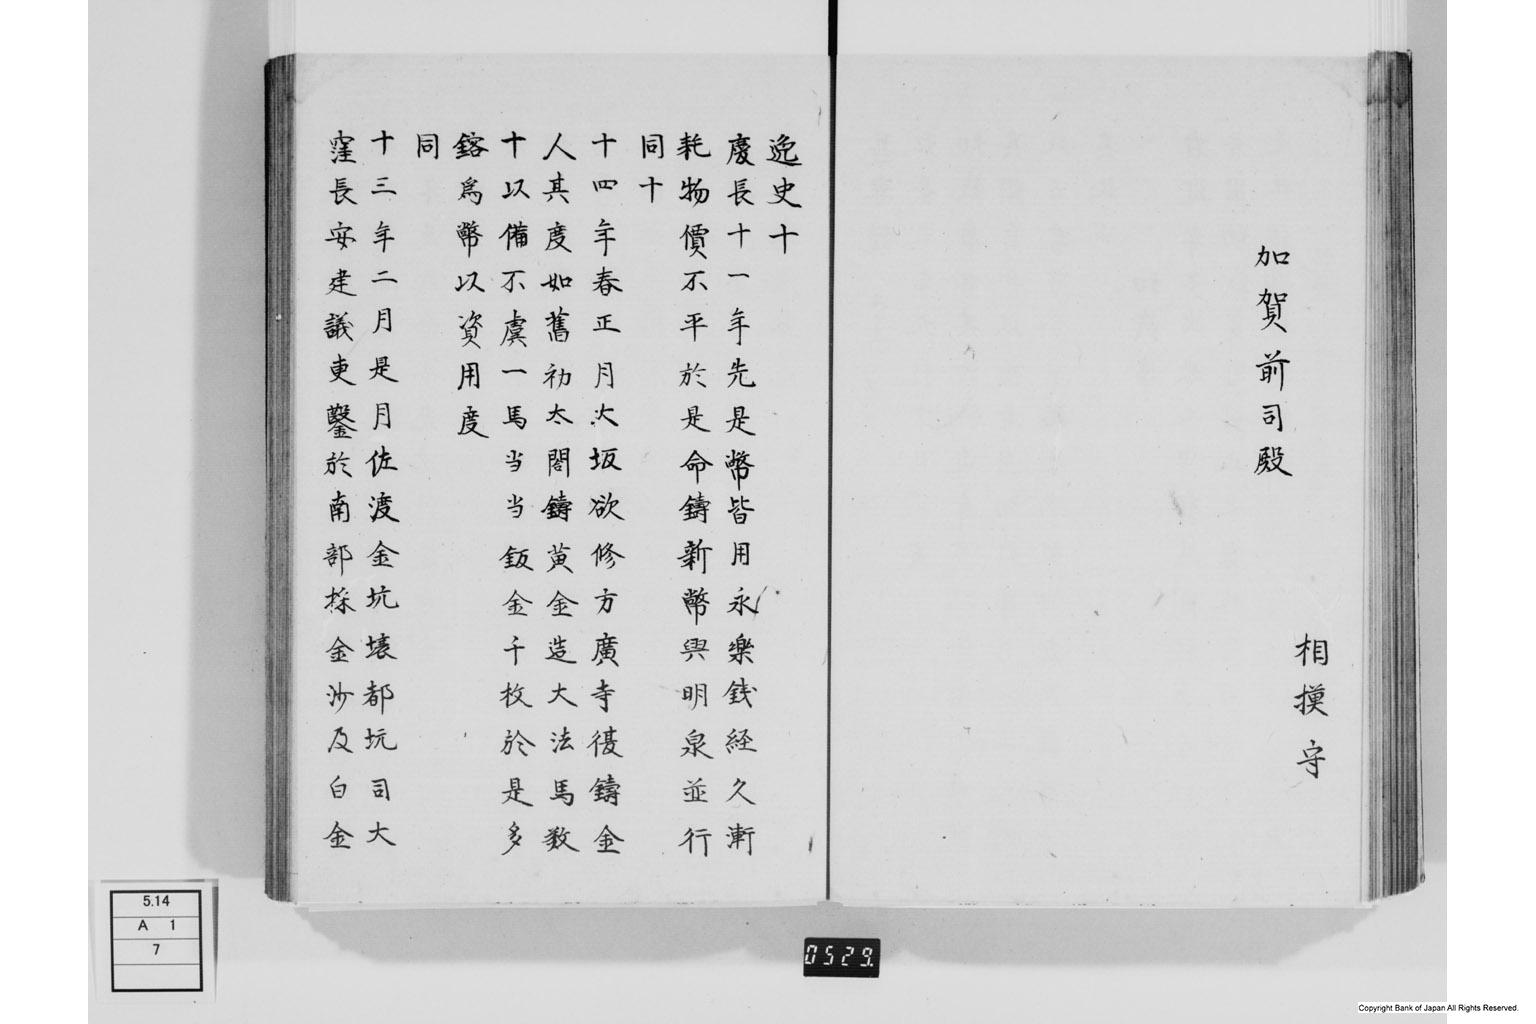 相摸守
加賀前司殿
逸史十
慶長十一年先是幣皆用永樂銭経久漸
耗物價不平於是命鑄新幣與明泉並行
同十
十四年春正月大坂欲修方廣寺復鑄金
人其度如舊初太閤鑄黄金造大法馬数
十以備不虞一馬当当鈑金千枚於是多
鎔爲幣以資用度
同
十三年二月是月佐渡金坑壊都坑司大
窪長安建議更鑿於南部採金沙及白金
5.14
A 1
7
0529.
Copyright Bank of Japan All Rights Reserved.